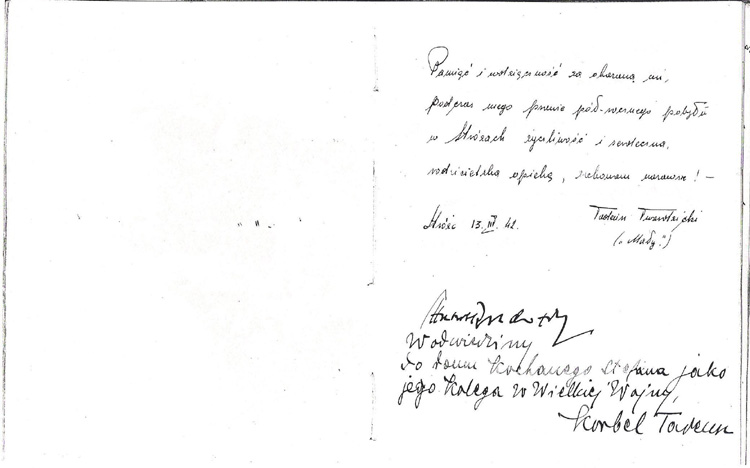 Pamięć i wdzięczność za okazaną mi,
podczas mego prawie pół-rocznego pobytu
w Stróżach życzliwość i serdeczną,
rodzicielską opiekę, zachowam na zawsze! —
Stróże 13.III.42.
Tadeusz
("Mały")
W odwiedziny
do domu kochanego Stefana jako
jego kolega w Wielkiej Wojny,
Korbel Tadeusz